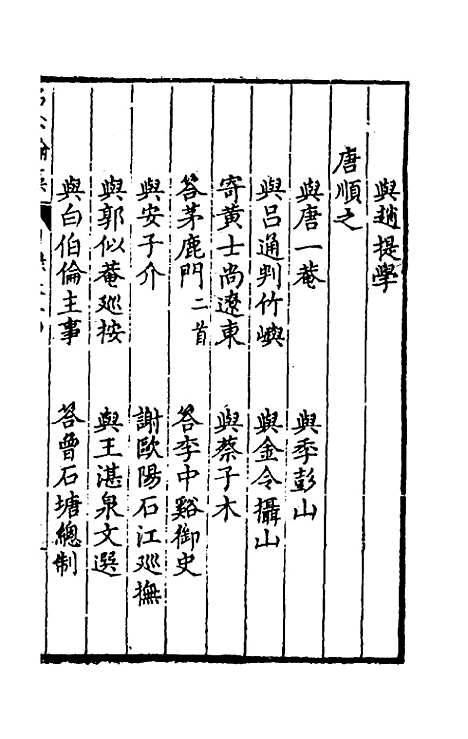 與趙提學
唐順之
與唐一菴
與季彭山
與呂通判竹嶼
與金令攝山
寄黃士尚遼東
與蔡子木
荅茅鹿門二首
荅李中谿御史
與安子介
謝歐陽石江廵撫
與郭似菴廵按
與王湛泉文選
與白伯倫主事
荅曾石塘總制